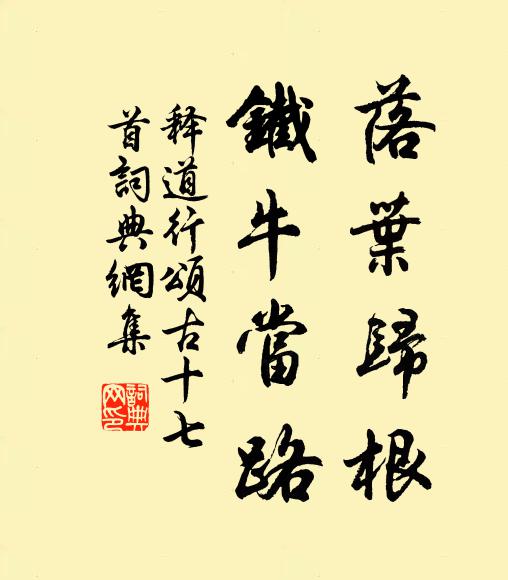 落葉歸根
鐵牛當路
释道行頌古十七
首詞典網集
詞典
网印